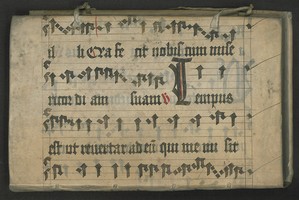 fe cit vobiscum mise
ricordi am suam b Tempus
est ut revertar ad eū qui me mi sit